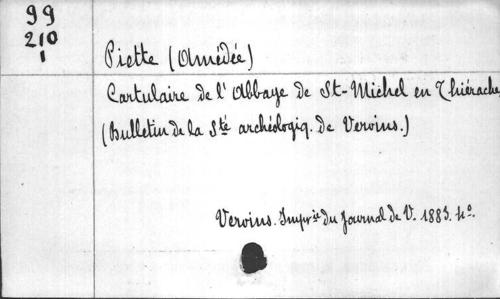 99
210
1
Piette (Amédée)
Cartulaire de l'Abbaye de St-Michel en Thiérache
(Bulletin de la Sté archéologiq. de Vervins.)
Vervins. Impr<sup>ie</sup> du Journal de V. 1883. 4°.